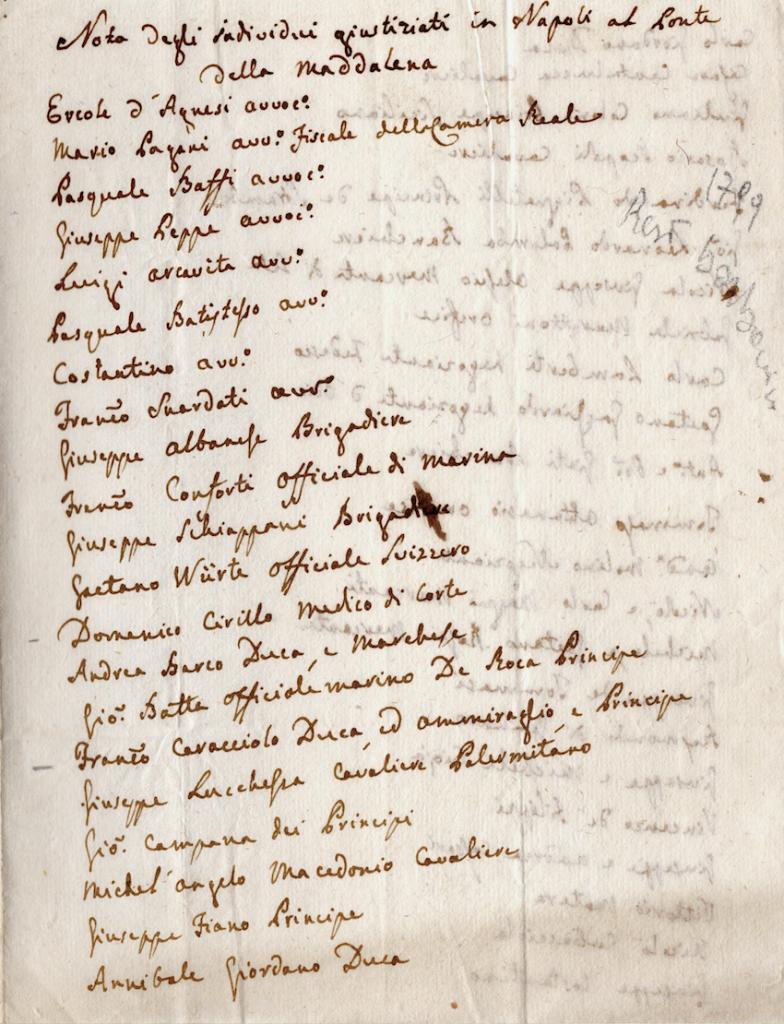 Nota degli individui giustiziati in Napoli al Ponte
della Maddalena
Ercole d'Agnesi avvoc.º
Mario Pagani avv.º Fiscale della Camera Reale
Pasquale Baffi avvoc.º
Giuseppe Peppe avvoc.º
Luigi arcavita avv.º
Pasquale Batistesso avv.º
Costantino avv.º
Franco Suardati avv.º
Giuseppe albanese Brigadiere
Franco Conforti officiale di marina
Giuseppe Schiappani Brigadiere
Gaetano Würte officiale Svizzero
Domenico Cirillo Medico di Corte
Andrea Barco Duca, e Marchese
Gio. Batta officiale marino De Roca Principe
Franco Caracciolo Duca ed ammiraglio, e Principe
Giuseppe Lucchessa Cavaliere Palermitano
Gio. Campana dei Principi
Michel'angelo Macedonio Cavaliere
Giuseppe Fiano Principe
Annibale Giordano Duca
1799